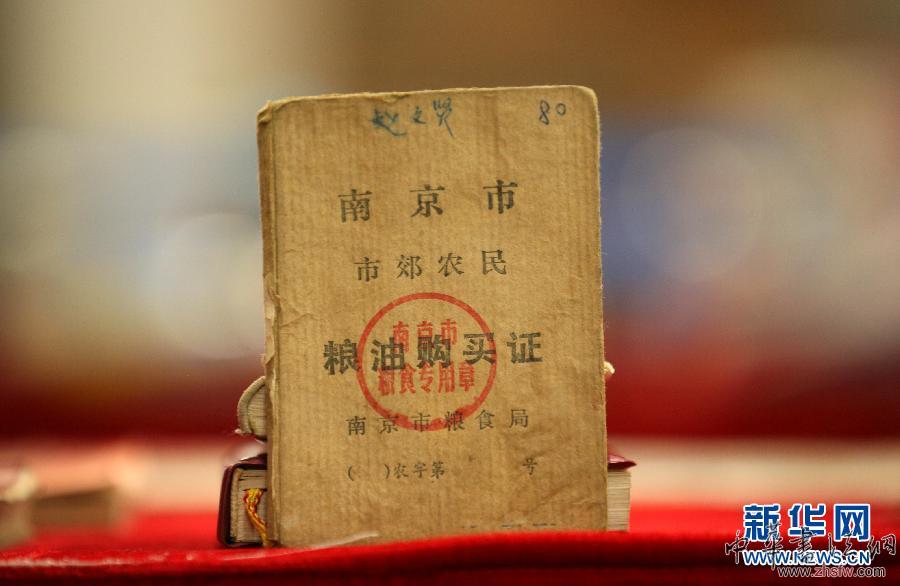 赵文贤 80
南京市
市郊农民
粮油购买证
南京市
粮食专用章
南京市粮食局
( )农字第 号
新华网
WWW.NEWS.CN
中华书法网
www.zhsfw.com